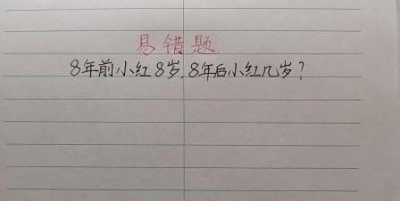 易错题
8年前小红8岁.8年后小红几岁?